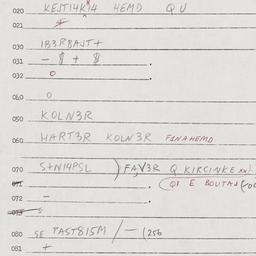 020 KEJTI4K14 HEMD Q U
021
030 1B3R8AJT+
031 - 8 + 8 .
032 O
040 O
050 KOLN3R
060 HART3R KOLN3R FINAHEMD
070 S+N14PSL ) FAV3R Q KIRCINKE xx)
071 . (QI E BOUTAJ
072 - .
073 S
080 SE PAST815M / - (256
081 +